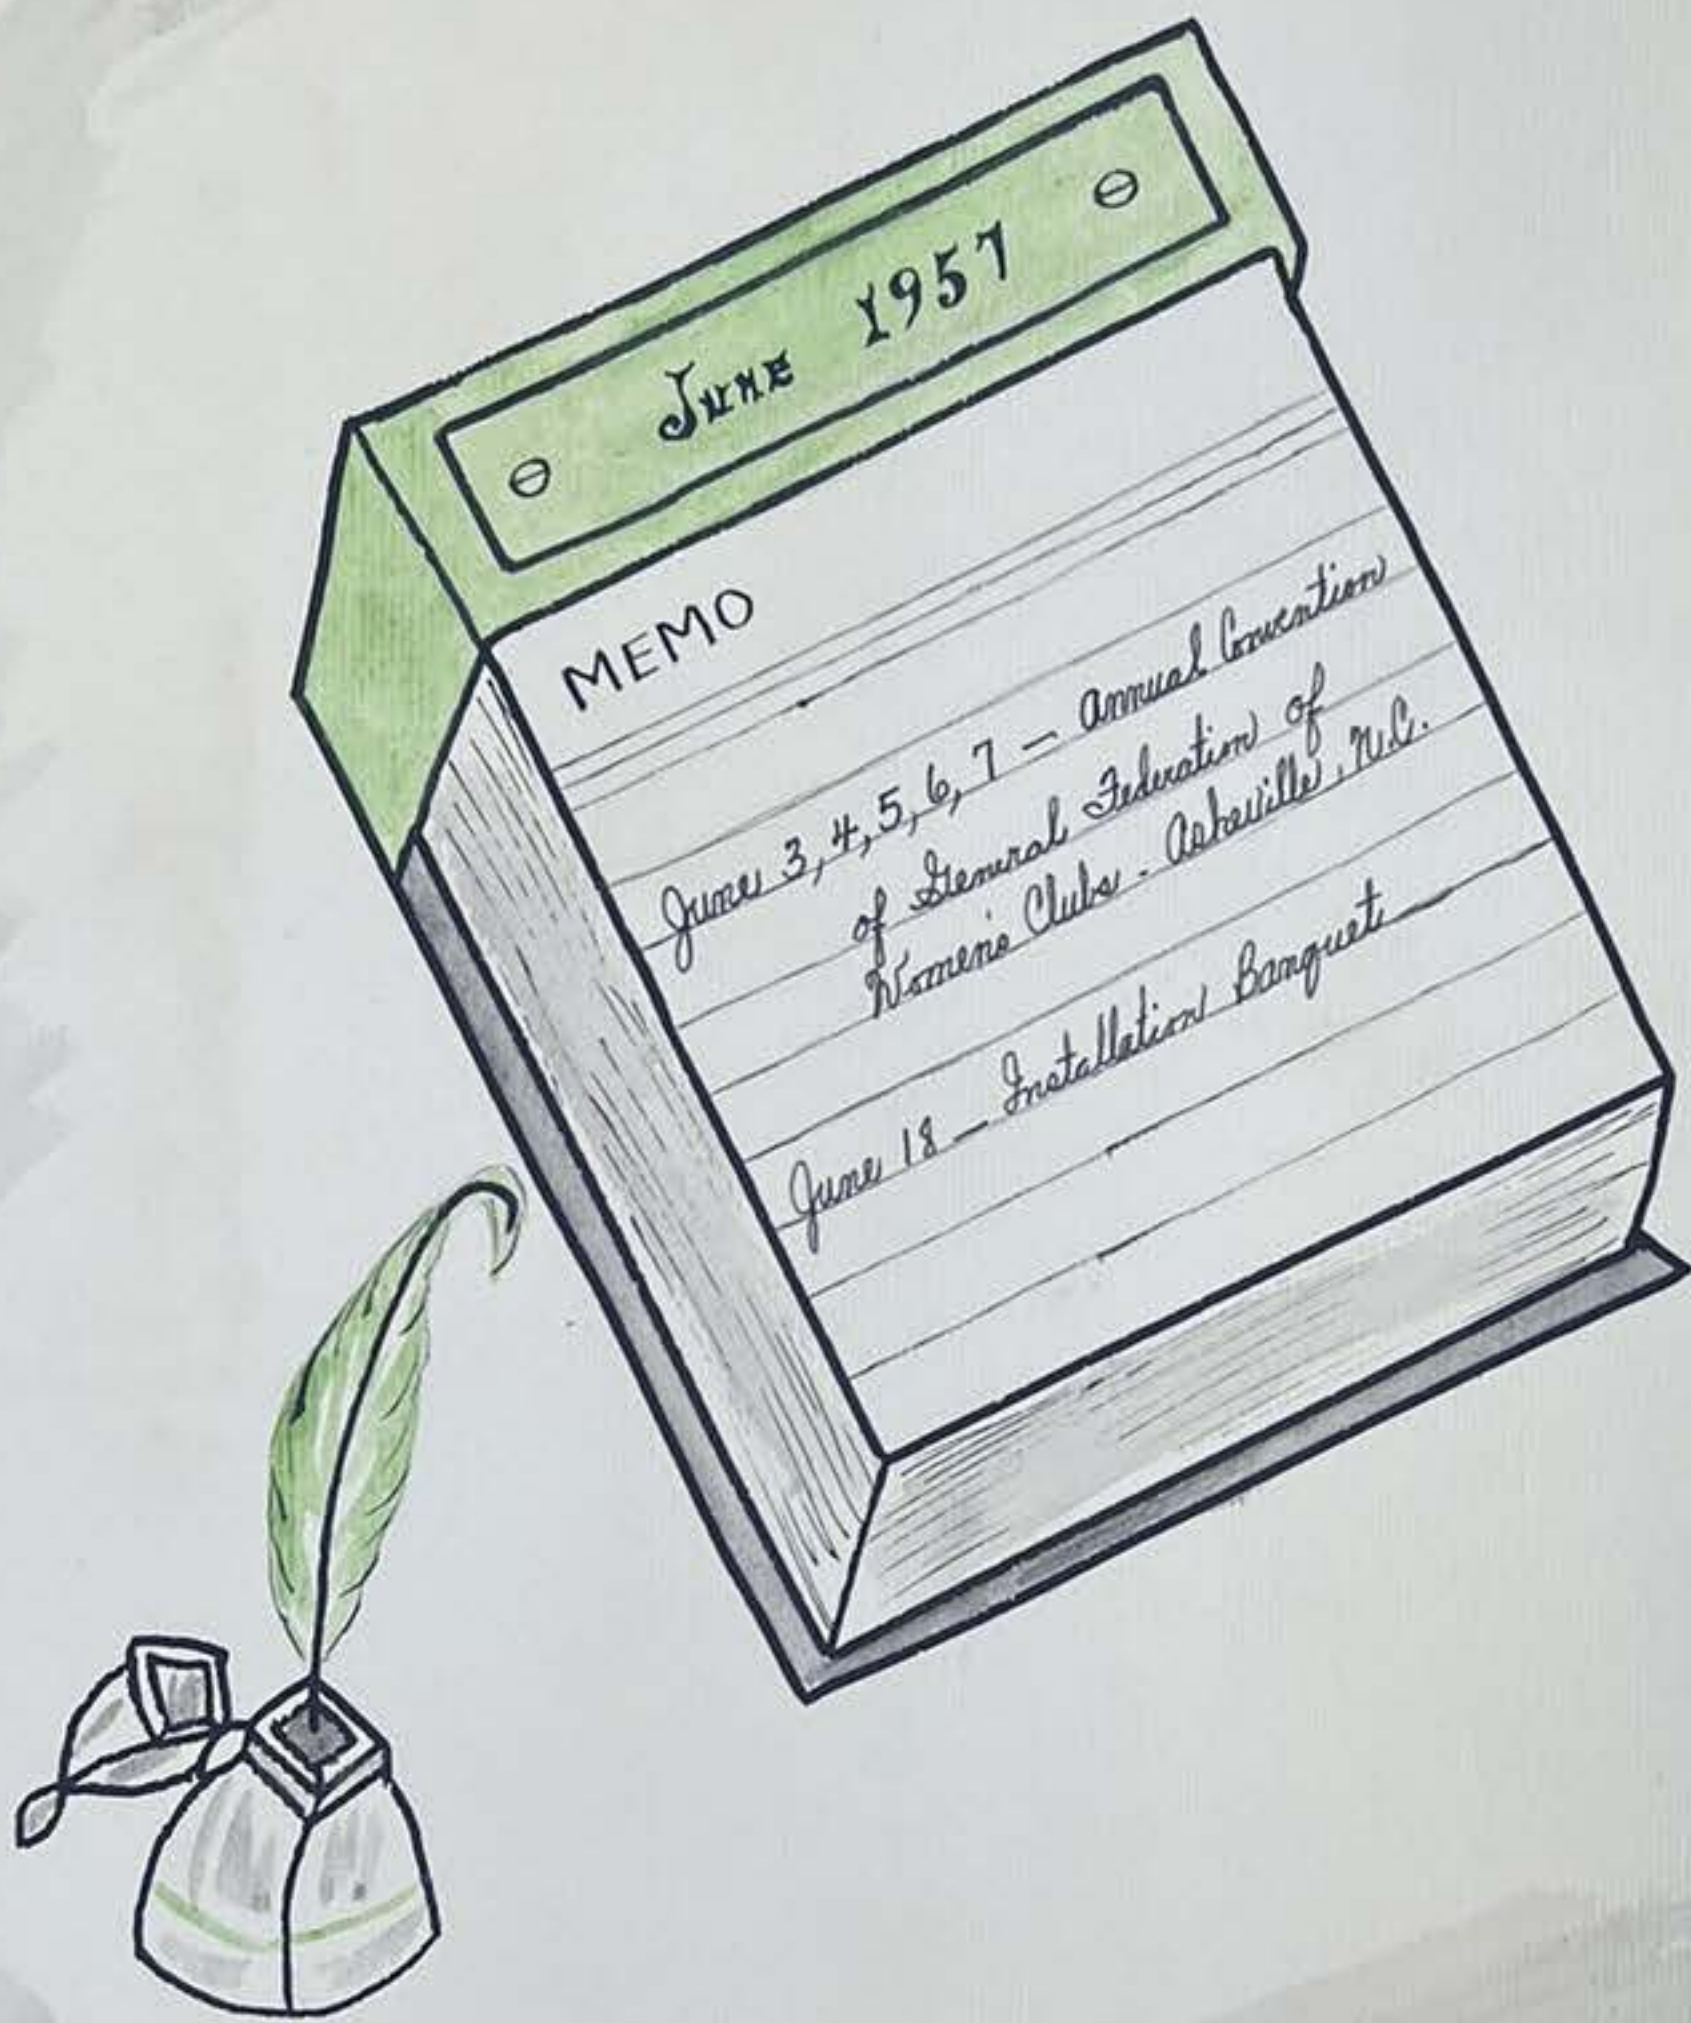 June 1957
MEMO
June 3, 4, 5, 6, 7 — Annual Convention
of General Federation of
Women's Clubs - Asheville, N.C.
June 18 — Installation Banquet